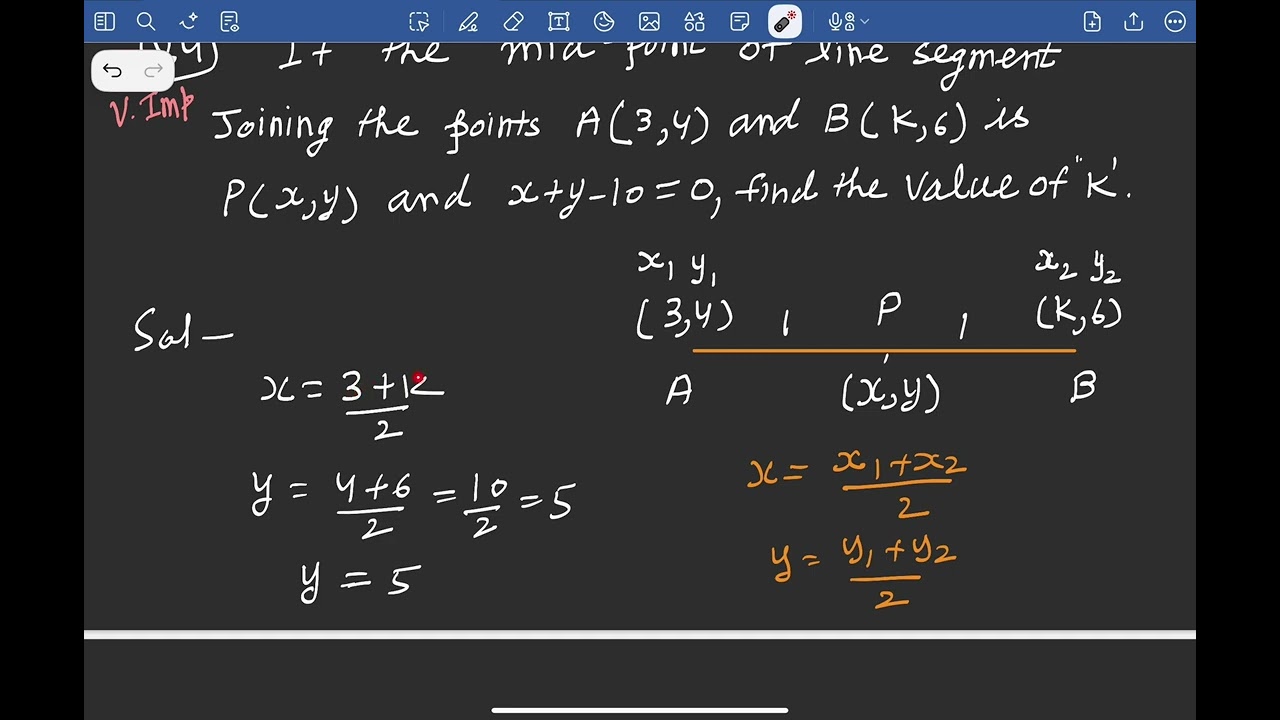 If the mid-point of line segment
V. Imp
Joining the points A(3,4) and B(K,6) is
P(x,y) and x+y-10=0, find the value of "K'.
x₁ y₁
x₂ y₂
(3,4) 1 P 1 (K,6)
Sol-
A (x,y) B
x = 3+K/2
y = 4+6/2 = 10/2 = 5
y = 5
x = x₁+x₂/2
y = y₁+y₂/2